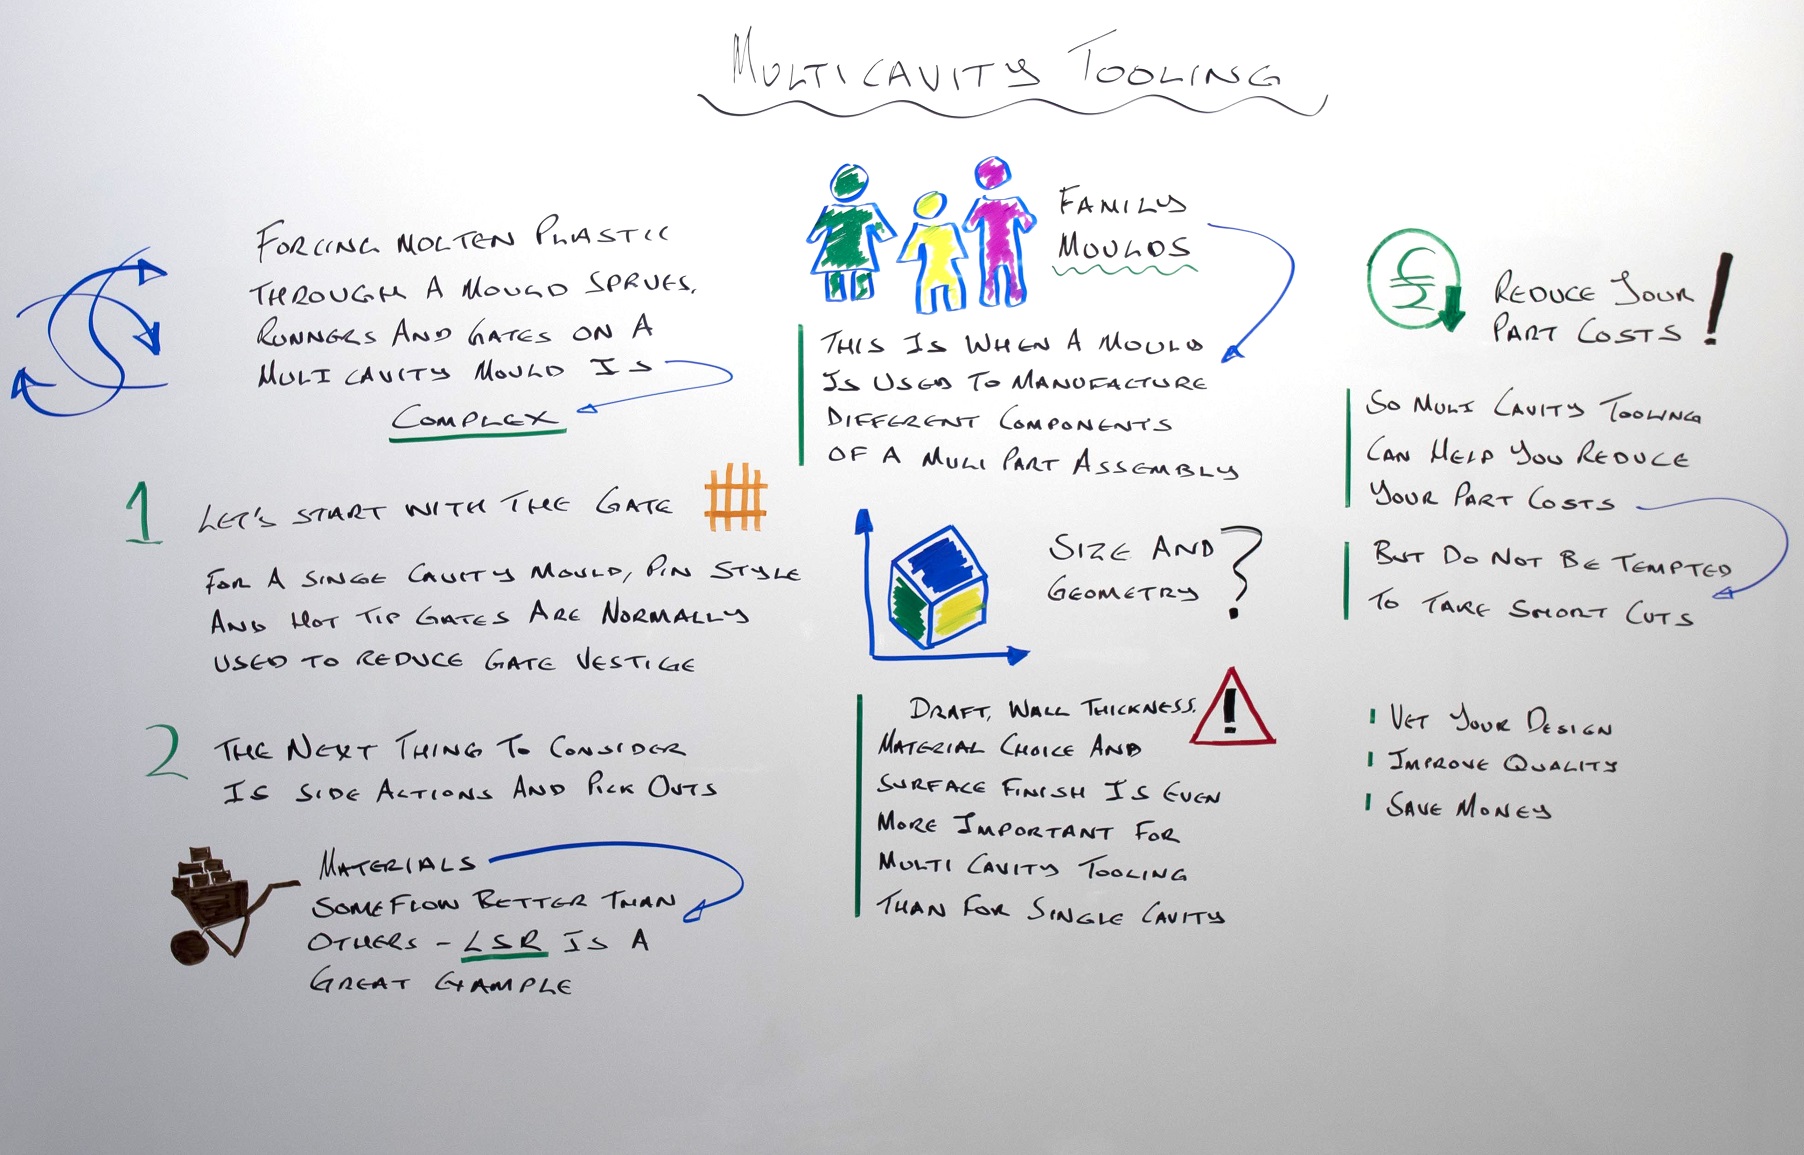 MULTICAVITY TOOLING
FORCING MOLTEN PLASTIC
THROUGH A MOULD SPRUES,
RUNNERS AND GATES ON A
MULI CAVITY MOULD IS
COMPLEX
1 LET'S START WITH THE GATE
FOR A SINGE CAVITY MOULD, PIN STYLE
AND HOT TIP GATES ARE NORMALLY
USED TO REDUCE GATE VESTIGE
2 THE NEXT THING TO CONSIDER
IS SIDE ACTIONS AND PICK OUTS
MATERIALS
SOME FLOW BETTER THAN
OTHERS - LSR IS A
GREAT EXAMPLE
FAMILY
MOULDS
THIS IS WHEN A MOULD
IS USED TO MANUFACTURE
DIFFERENT COMPONENTS
OF A MULI PART ASSEMBLY
SIZE AND
GEOMETRY ?
!
DRAFT, WALL THICKNESS,
MATERIAL CHOICE AND
SURFACE FINISH IS EVEN
MORE IMPORTANT FOR
MULTI CAVITY TOOLING
THAN FOR SINGLE CAVITY
£
REDUCE YOUR
PART COSTS !
SO MULI CAVITY TOOLING
CAN HELP YOU REDUCE
YOUR PART COSTS
BUT DO NOT BE TEMPTED
TO TAKE SHORT CUTS
VET YOUR DESIGN
IMPROVE QUALITY
SAVE MONEY